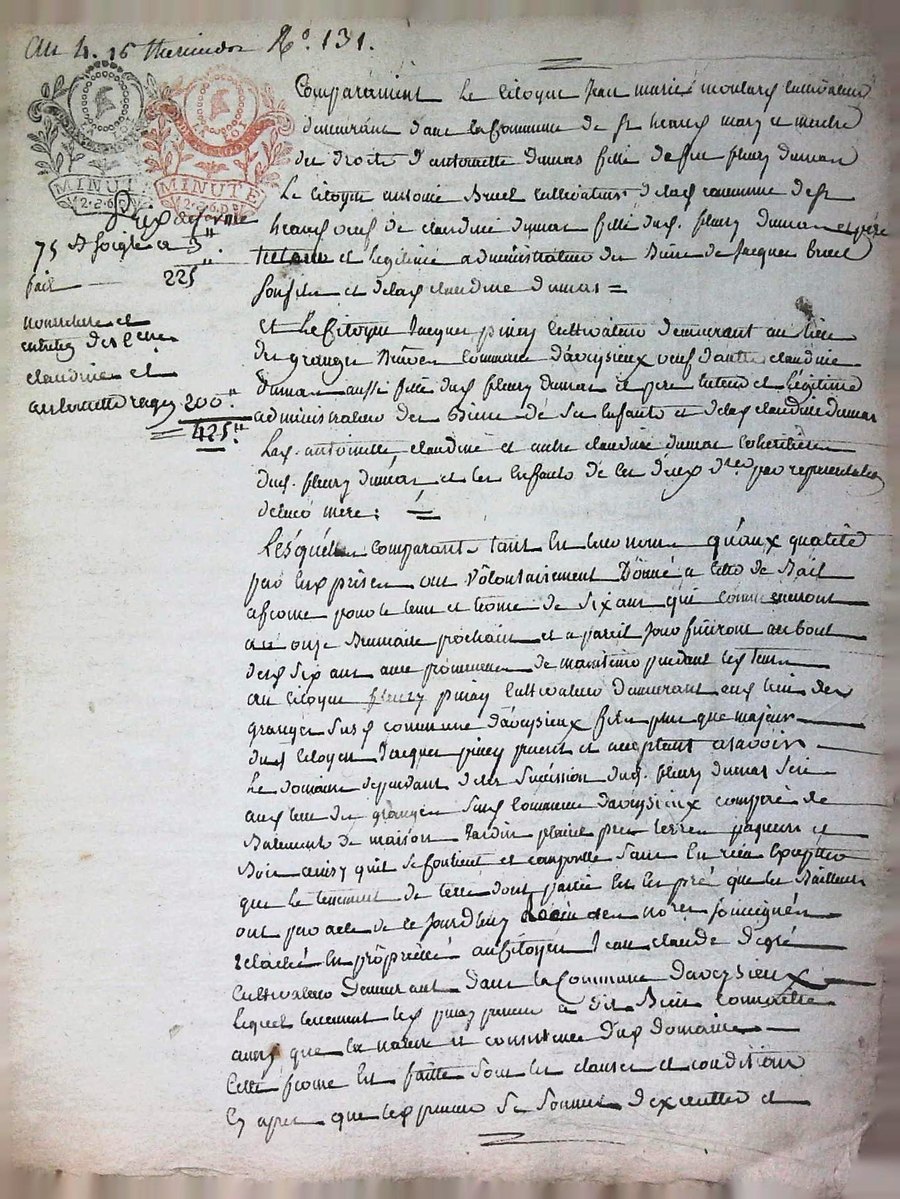 An 4. 16 thermidor N°. 131.
MINUTE
MINUTE
Prix de ferme
75 de soigle a 3"
225"
bail
nourriture et
entretien des
claudine et
antoinette 200"
425"
Comparaissent le Citoyen Jean marie moulard Cultivateur
demeurant dans la Commune de st heand mary et maitre
des droits d'antoinette dumas fille de feu fleury dumas
Le Citoyen antoine Bruel Cultivateur de lad commune de st
heand veuf de claudine dumas fille dud. fleury dumas et père
et legitime administrateur des Biens de Jacques bruel
son fils et de lad claudine dumas =
Et le Citoyen Jacques piney Cultivateur demeurant au lieu
des granges Commune d'aveysieux veuf d'autre claudine
dumas aussi fille dud fleury dumas et pere tuteur et légitime
administrateur des Biens de ses Enfants et de lad claudine dumas
Lad. antoinette, claudine et autre claudine dumas Coheritieres
dud. fleury dumas et les Enfants de ces deux par representation
de leur mere :
Lesquels comparants tant en leurs noms qu'aux qualités
par eux prises ont vôlontairement Donné a titre de Bail
a ferme pour le tems et terme de six ans qui commenceront
au onze Brumaire prochain et a pareil jour finiront au bout
desd six ans avec promesse de maintenir pendant led tems
au citoyen fleury piney Cultivateur demeurant aud lieu des
granges susd commune d'aveysieux fils plus que majeur
dud Citoyen Jacques piney present et acceptant a savoir
Le domaine dependant de la succession dud. fleury dumas scis
aud lieu des granges susd Commune d'aveysieux composé de
Batiment de maison Jardin prés terres paquiers et
Bois ainsy qu'il se contient et comporte sans en rien Excepter
que le tenement de terre dont partie est en pré que les Bailleurs
ont par acte de ce Jourd'huy nores soussignés
relaché en pröpriété au Citoyen Jean claude
Cultivateur Demeurant dans la Commune d'aveysieux
lequel tenement led piney preneur a dit Bien Connaitre
ainsy que la nature et consistence dud domaine
Cette ferme est faitte sous les clauses et conditions
Cy apres que led preneur se soumet d'executter et